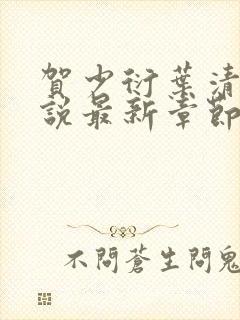 賀少衍葉清
說最新章節
不問蒼生問鬼